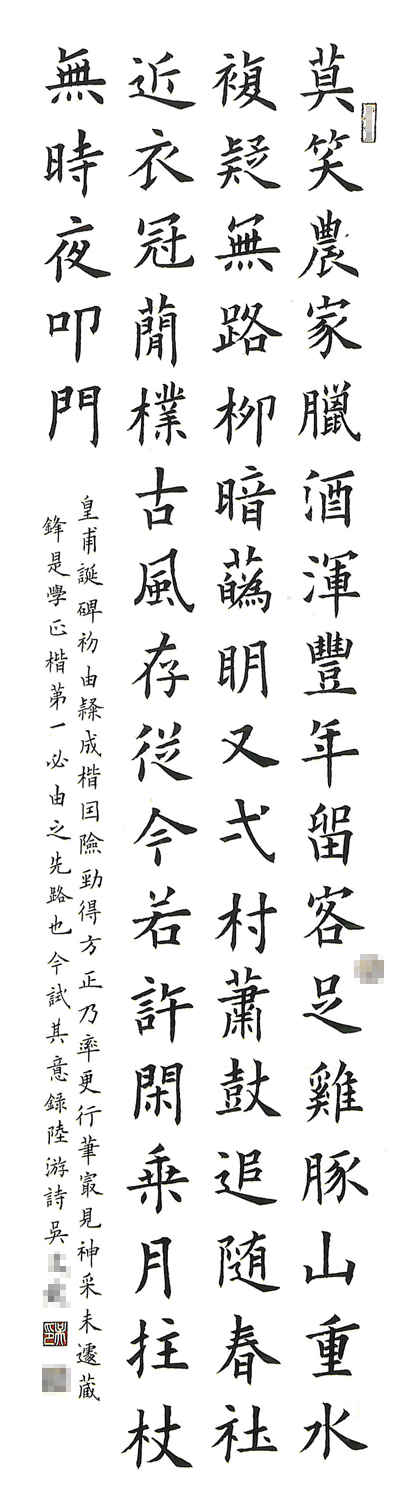 莫笑農家臘酒渾豐年留客足雞豚山重水
複疑無路柳暗蘤明又弌村蕭鼓追随春社
近衣冠蕳樸古風存從今若許閑乗月拄杖
無時夜叩門
皇甫誕碑初由隸成楷囙險勁得方正乃率更行筆㝡見神采未遽藏
鋒是學正楷第一必由之先路也今試其意錄陸游詩吳